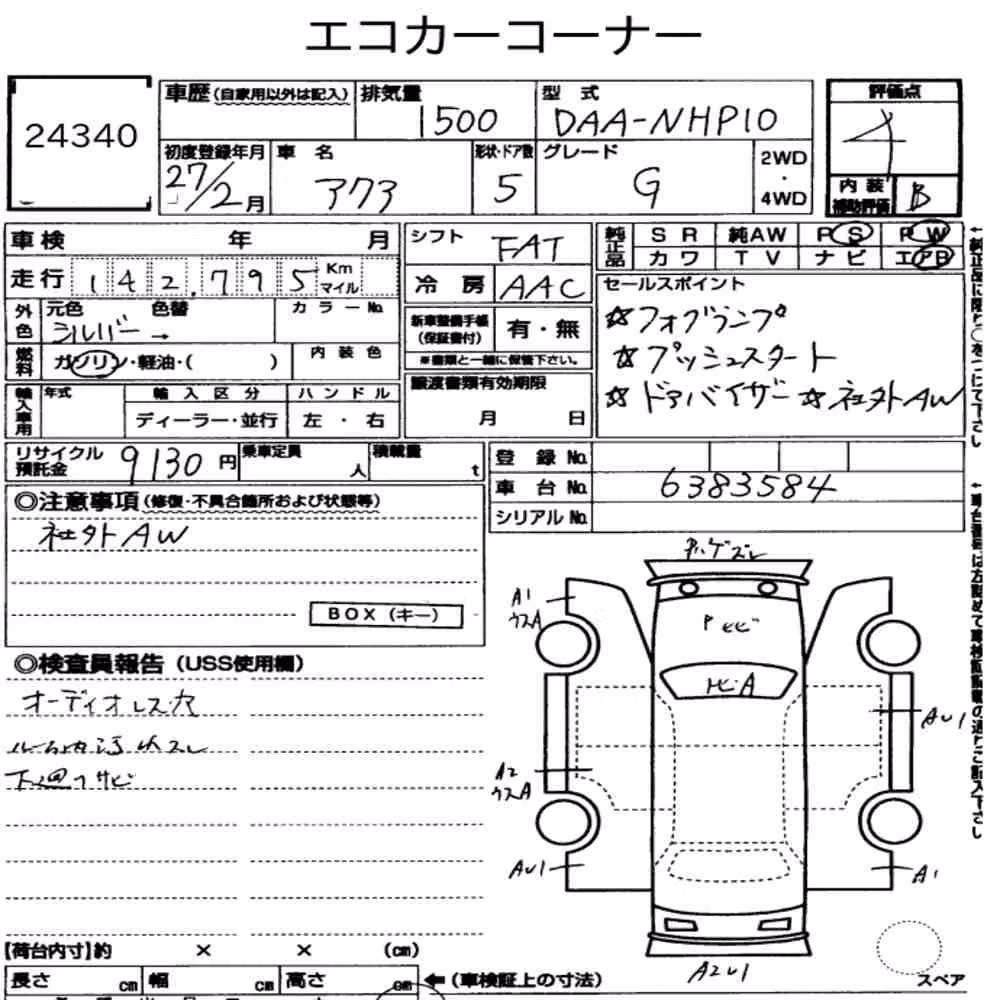 エコカーコーナー
24340
車歴(自家用以外は記入) 排気量 1500 型式 DAA-NHP10 評価点 4
初度登録年月 27/2月 車名 アクア 形状・ドア数 5 グレード G 2WD・4WD 内装補助評価 B
車検 年 月 シフト FAT 純正品 SR 純AW PS PW
カワ TV ナビ エアB
走行 142,795 Km マイル 冷房 AAC セールスポイント
外色 元色 色替 カラーNo.
シルバー → 新車整備手帳(保証書付) 有・無 ☆フォグランプ
※書類と一緒に保管下さい。
燃料 ガソリン・軽油・( ) 内装色 ☆プッシュスタート
輸入車用 年式 輸入区分 ハンドル 譲渡書類有効期限 ☆ドアバイザー ☆社外AW
ディーラー・並行 左・右 月 日
リサイクル預託金 9130円 乗車定員 人 積載量 t 登録No.
車台No. 6383584
シリアルNo.
◎注意事項(修復・不具合箇所および状態等)
社外AW
BOX(キー)
◎検査員報告(USS使用欄)
オーディオレス穴
ル内汚レスレ
下廻りサビ
ハゲズレ
A1
ウスA
Pヒビ
ヒ・A
AU1
A2
ウスA
AU1
A1
A2U1
【荷台内寸】約 × × (cm)
長さ cm 幅 cm 高さ cm ←(車検証上の寸法) スペア